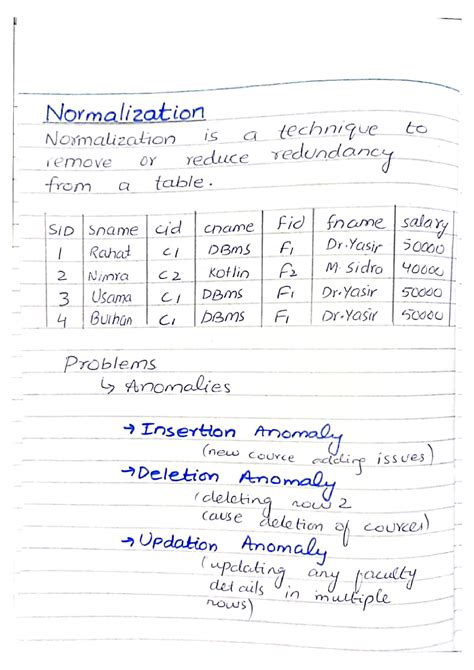 Normalization
Normalization is a technique to
remove or reduce redundancy
from a table.
SID Sname cid cname Fid fname salary
1 Rahat C1 DBms F1 Dr.Yasir 50000
2 Nimra C2 Kotlin F2 M. Sidro 40000
3 Usama C1 DBms F1 Dr.Yasir 50000
4 Burhan C1 DBms F1 Dr.Yasir 50000
Problems
↳ Anomalies
→ Insertion Anomaly
(new cource adding issues)
→ Deletion Anomaly
(deleting row 2
cause deletion of cource)
→ Updation Anomaly
(updating any faculty
details in multiple
rows)